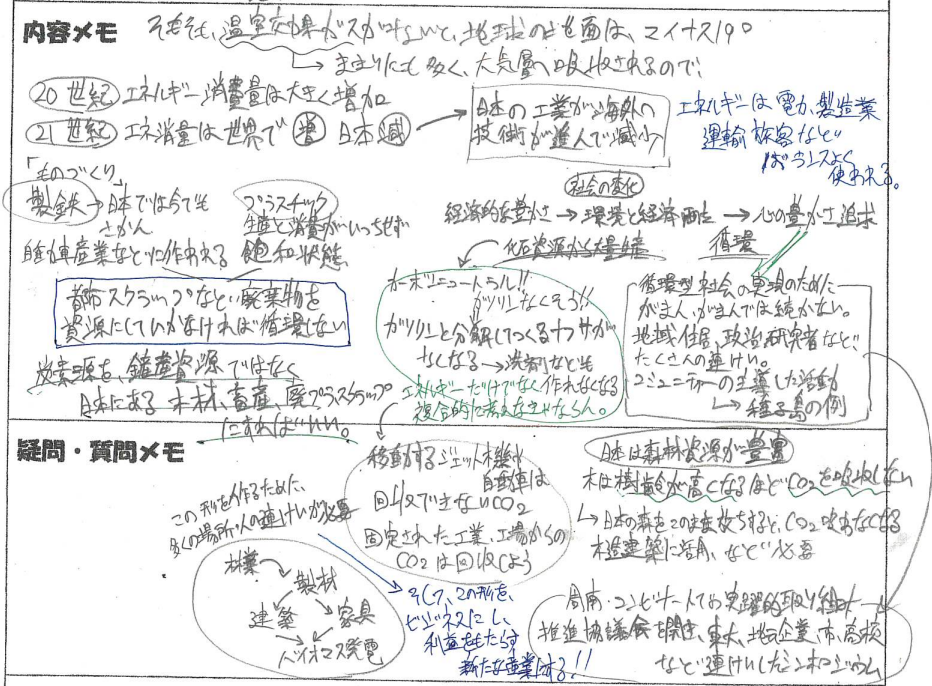 内容メモ
そもそも、温室効果ガスがないと、地球の地面は、マイナス19°
→ あまりにも多く、大気層へ吸収されるので、
20世紀 エネルギー消費量は大きく増加
21世紀 エネ消量は世界で増 日本減 →
日本の工業が海外へ
技術が進んで減少
エネルギーは電力、製造業
運輸 旅客など
ばらんすよく
使われる。
「ものづくり」
製鉄 → 日本では今でも
さかん
自動車産業などに作われる
プラスチック
生産と消費がいっちせず
飽和状態
社会の変化
経済的な豊かさ → 環境と経済両立 → 心の豊かさ追求
化石資源から大量生産
循環
都市スクラップなどい廃棄物を
資源にしていかなければ循環しない
カーボンニュートラル!!
ガソリンなくそう!!
ガソリンと分解してつくるナフサが
なくなる → 洗剤なども
エネルギーだけでなく作れなくなる
複合的に考えなきゃならん。
循環型社会の実現のために
がまん、がまんでは続かない。
地域住民、政治、研究者など
たくさんの連けい。
コミュニティーの主導した活動
→ 種子島の例
炭素源を、鉱産資源ではなく
日本にある 木材、畜産、廃プラスクラップ
にすればいい。
疑問・質問メモ
この形を作るために、
多くの場所、人の連けいが必要
林業
製材
建築 家具
バイオマス発電
移動するジェット機や
自動車は
回収できないCO2
固定された工業、工場からの
CO2は回収しよう
そして、この形を、
ビジネスにし、
利益をもたらす
新たな産業にする!!
日本は森林資源が豊富
木は樹齢が高くなるほどCO2を吸収しない
→ 日本の森をこのまま放ちすると、CO2吸わなくなる
木造建築に活用、などが必要
周南・コンビナートでお実躍的取り組み
推進協議会を開き、東大、地元企業、市、高校
など連けいしたシンポジウム